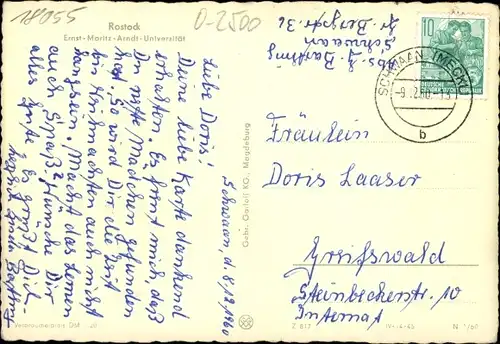 18055
O-2500
Rostock
Ernst-Moritz-Arndt-Universität
Schwaan, d. 8.12.1960
Liebe Doris!
Deine liebe Karte dankend
erhalten. Es freut mich, daß
Du nette Mädchen gefunden
hast. So wird Dir die Zeit
bis Weihnachten auch nicht
lang sein. Macht das Lernen
auch Spaß? Wünsche Dir
alles Gute. Es grüßt Dich
Gebr. Garloff KG., Magdeburg
Verbraucherpreis DM
Abs. J. Bartling
Schwaan
gr. Bergstr. 3
10
SCHWAAN (MECKL)
b
Fräulein
Doris Laaser
Greifswald
Steinbeckerstr. 10
Internat
Z 817
IV-14-45
N 1/60